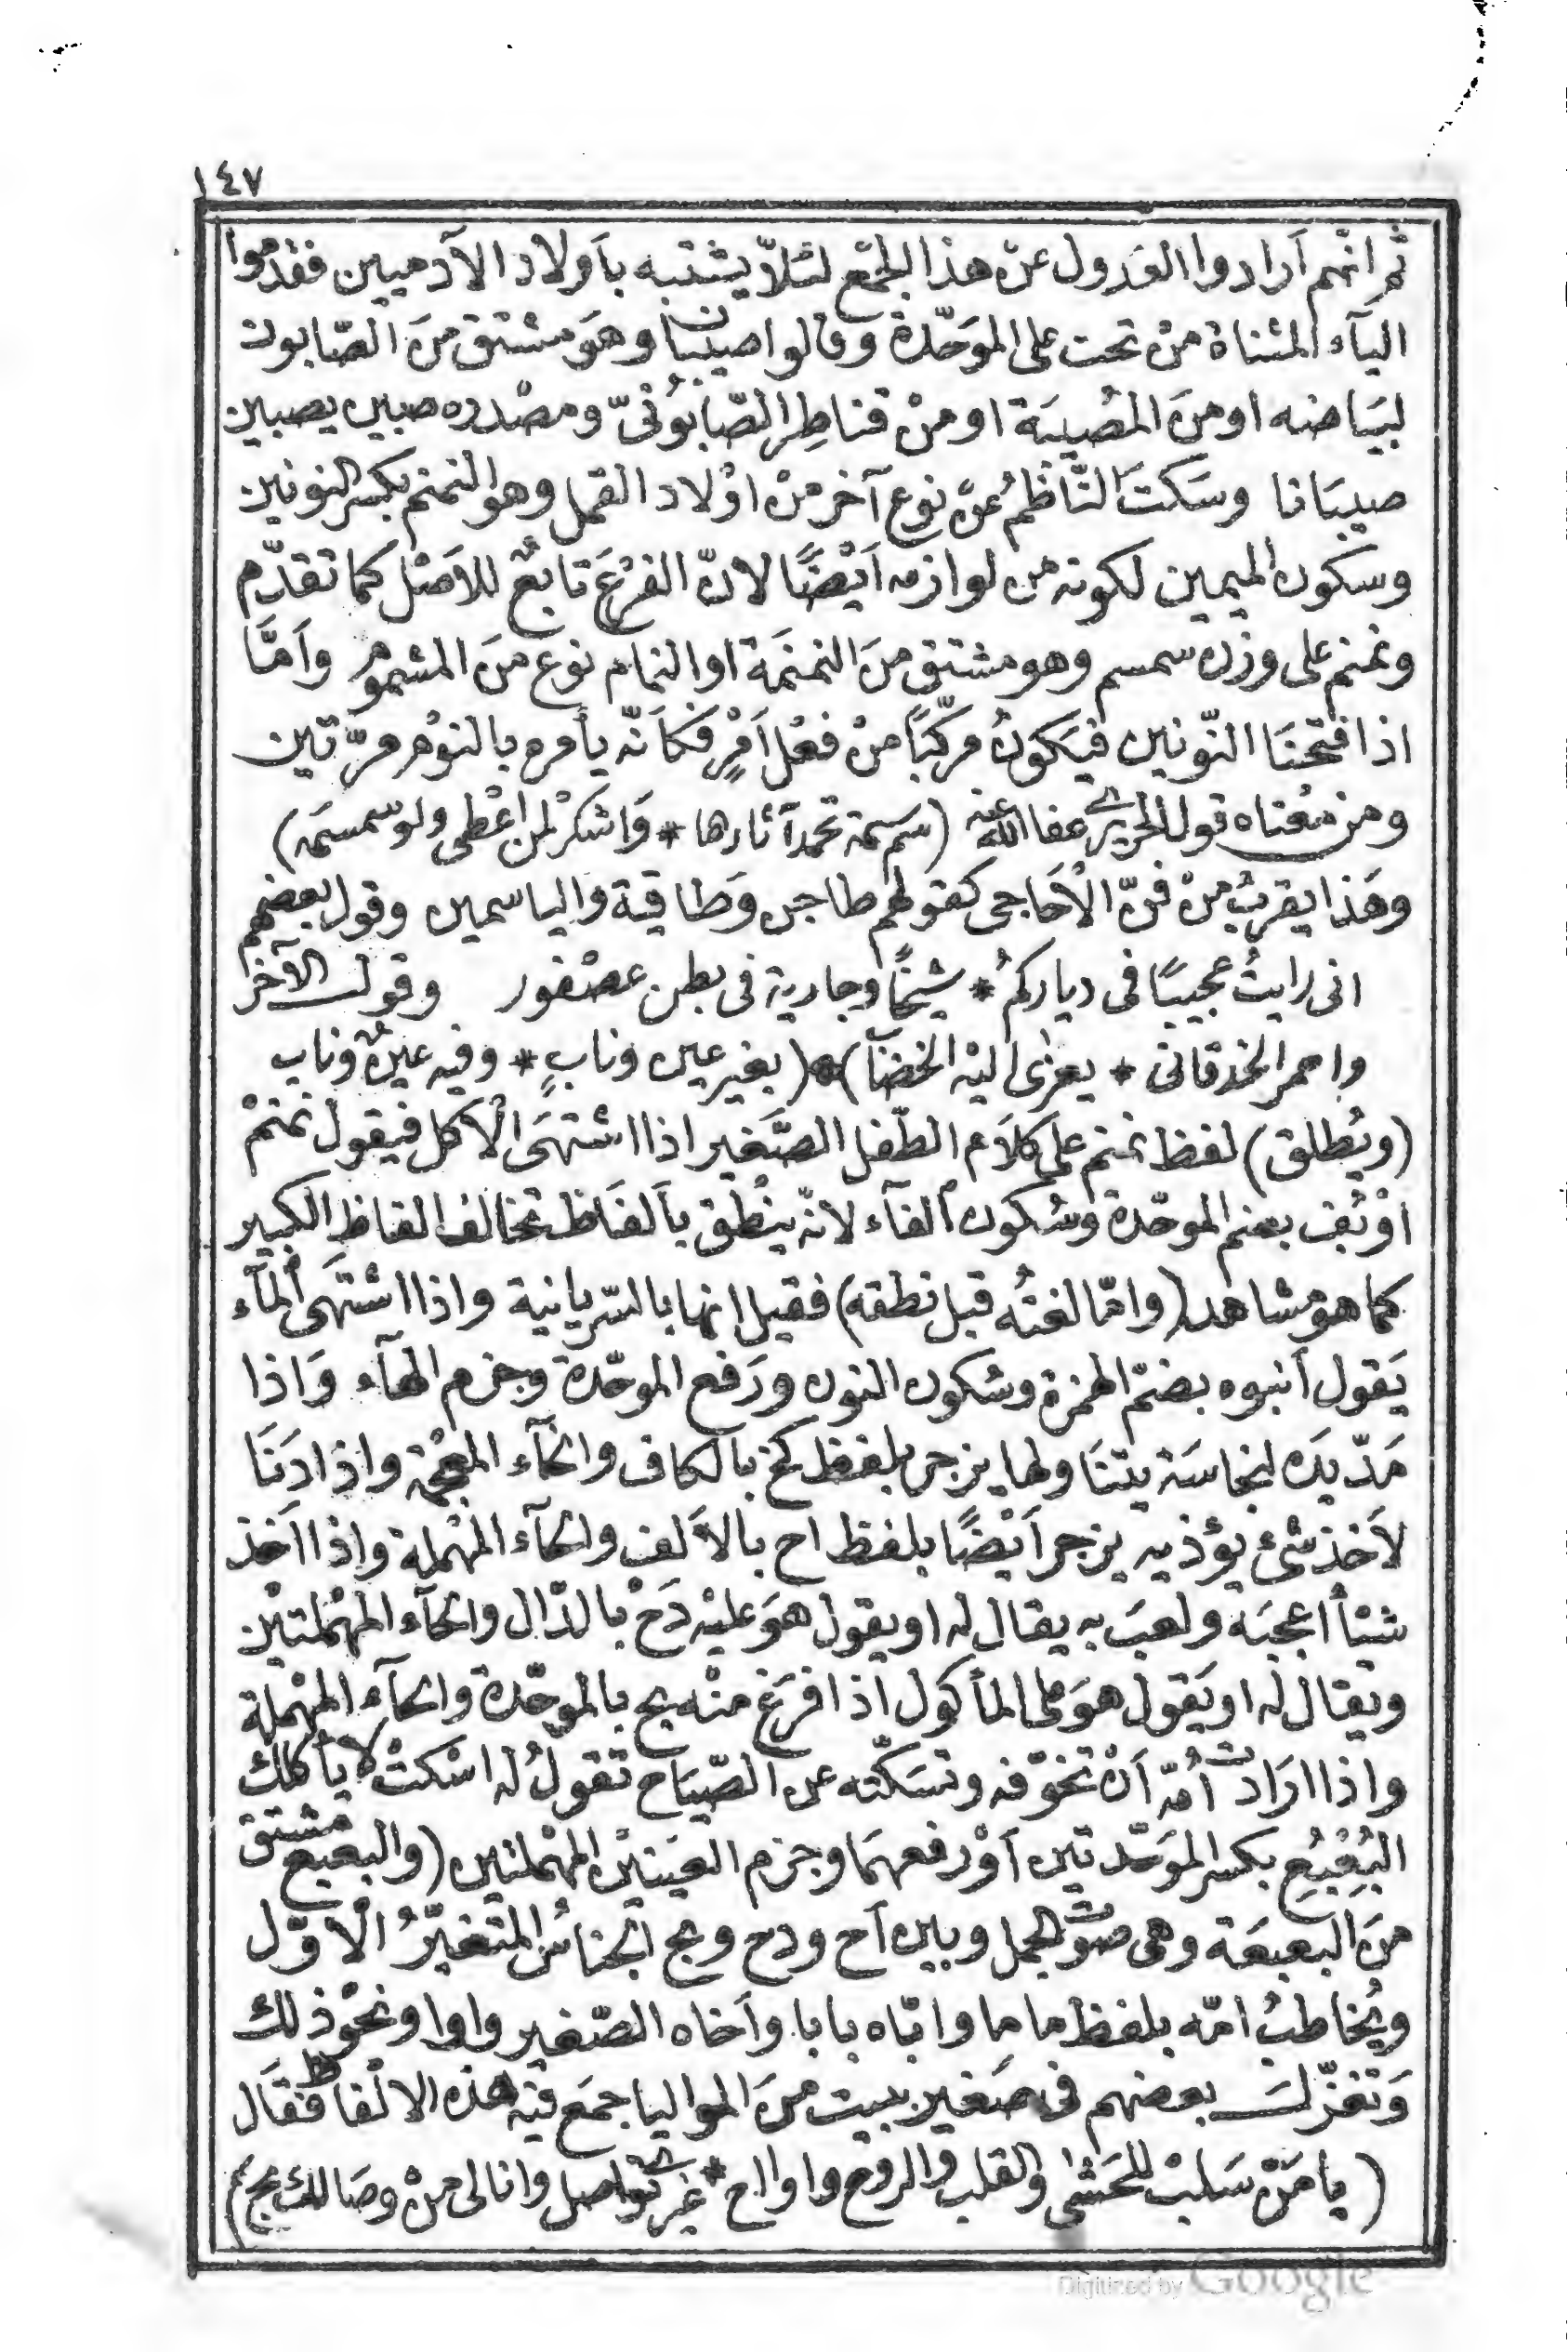 ١٤٧
ثم انّهم أرادوا العدول عن هذا الجمع لئلّا يشتبه بأولاد الآدميين فقدموا
اليآء المثناة من تحت على الموَحّدة وقالوا صيبان وهوَ مشتق منَ الصّابون
لبيَاضه او منَ المصُيبَة او منْ قناطِر الصّابُونىّ ومصْدره صبين يصبين
صيبَانا وسَكتَ النّاظمُ عنْ نوع آخر منْ اوْلاد القمل وهو النمنم بكسر النونين
وسكون الميمين لكونه من لوازمه اَيْضًا لانّ الفرْعَ تابعٌ للاَصْل كما تقدّم
ونمنم على وزن سمسم وهو مشتق منَ النمنمَة او النمام نوع منَ المشموم وَاَمَّا
اذا فتحْنَا النّونين فيَكونُ مركّبًا منْ فعْل اَمْرٍ فكاَنّه يأمره بالنوْم مرّتين
ومن معْناه قول الحريرى عفا الله عنه (سَم سمة تحمد آثارها * وَاشكرْ لمن اعْطى ولو سمسمَه)
وهَذا يقربُ منْ فنّ الْاَحَاجى كقولهم طاجن وَطاقية والياسمين وقول بعضهم
انى رايتُ عجيبًا فى دياركمُ * شيخًا وجارية فى بطن عصْفور وقول الآخر
واحمر الخدقانى * يعزى اليْه الخضَابْ) * (بغير عين ونابٍ * وفيه عينٌ وناب
(ويُطلق) لفظ نمنم على كلَام الطّفل الصَّغير اذا اشتهَى الْاكل فيقول نمنمْ
اوْ بُف بضم الموحّدة وسُكون الفآء لانّه ينْطُق بأَلفَاظ تخالف الفاظ الكبير
كما هو مشاهد (وامّا لغتُه قبل نطقه) فقيل انها بالسّريانية واذا اشتَهى الْمآء
يَقول اُنبوه بضمّ الهمزة وسُكون النون ورَفع الموحّدة وجزم الهآء وَاذا
مَدّ يدَه لنجاسَة يتنَاولها يزجر بلفظ كخ بالكاف والخآء المعْجمة واذا دَنَا
لاَخذ شئ يؤذيه يزجر اَيْضًا بلفظ اح بالاَلف والحآء المهْملة واذا اَخذ
شيْأ اعجبَه ولعبَ به يقال له او يقول هوَ عليْه دَحْ بالدّال والحآء المهْملتيْن
ويقال لُه او يَقول هوَ على المأكول اذا فرَغ منْه بح بالموحّدة والحآء المهْملة
واذا ارَادت اُمّه اَنْ تخوّفه وتسَكّته عن الصّيَاح تقولُ له اسْكتْ لا يأكلك
البُعْبُعِ بكسر الموَحّدتين اَوْ رفعهمَا وجزم العيَنيْن المهْملتين (والبعبع مشتق
منَ البعبعَة وهى صوت الجمل وبين اَح ودح وبح الجناسُ المتغيّرُ الْاوّل
ويُخاطبُ امّه بلفظ ما ما واَبَاه بابا وأخاه الصّغير واوا ونحْو ذلك
وَتغزّل بعضهم فى صَغير ببيت منَ المواليا جمَع فيْه هَذه الالْفاظ فقَال
(يا مَنْ سَلبْ للحَشى والقلب والروح واوا اح * غيرى تواصل وانالى منْ وصَالك بح)